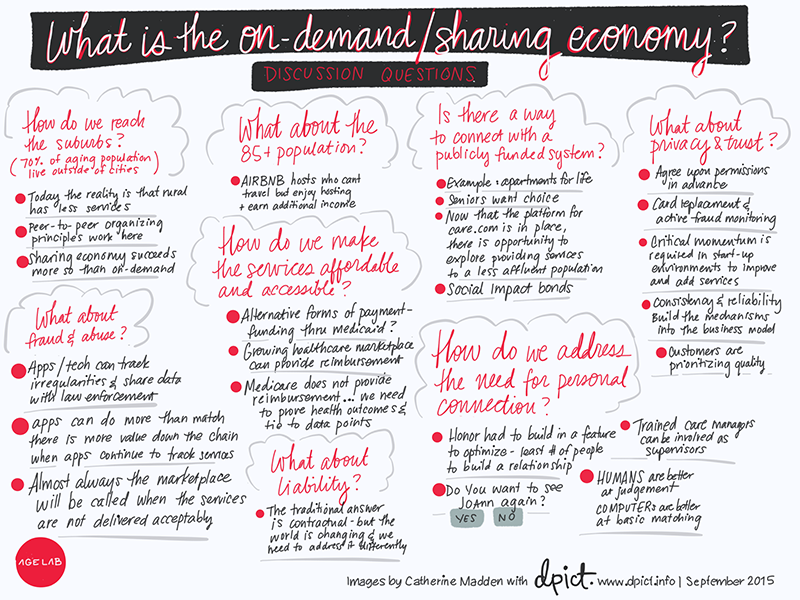 What is the on-demand/sharing economy?
DISCUSSION QUESTIONS
How do we reach
the suburbs?
(70% of aging population
live outside of cities)
Today the reality is that rural
has less services
Peer-to-peer organizing
principles work here
Sharing economy succeeds
more so than on-demand
What about
fraud & abuse?
Apps/tech can track
irregularities & share data
with law enforcement
apps can do more than match
there is more value down the chain
when apps continue to track services
Almost always the marketplace
will be called when the services
are not delivered acceptably
AGELAB
What about the
85+ population?
AIRBNB hosts who cant
travel but enjoy hosting
+ earn additional income
How do we make
the services affordable
and accessible?
Alternative forms of payment-
funding thru medicaid?
Growing healthcare marketplace
can provide reimbursement
Medicare does not provide
reimbursement... we need
to prove health outcomes &
tie to data points
What about
liability?
The traditional answer
is contractual - but the
world is changing & we
need to address it differently
Is there a way
to connect with a
publicly funded system?
Example: apartments for life
Seniors want choice
Now that the platform for
care.com is in place,
there is opportunity to
explore providing services
to a less affluent population
Social Impact bonds
How do we address
the need for personal
connection?
Honor had to build in a feature
to optimize - least # of people
to build a relationship
Do you want to see
JoAnn again?
YES NO
Trained care managers
can be involved as
supervisors
HUMANS are better
at judgement
COMPUTERs are better
at basic matching
What about
privacy & trust?
Agree upon permissions
in advance
Card replacement &
active fraud monitoring
Critical momentum is
required in start-up
environments to improve
and add services
Consistency & reliability
Build the mechanisms
into the business model
Customers are
prioritizing quality
Images by Catherine Madden with dpict. www.dpict.info | September 2015